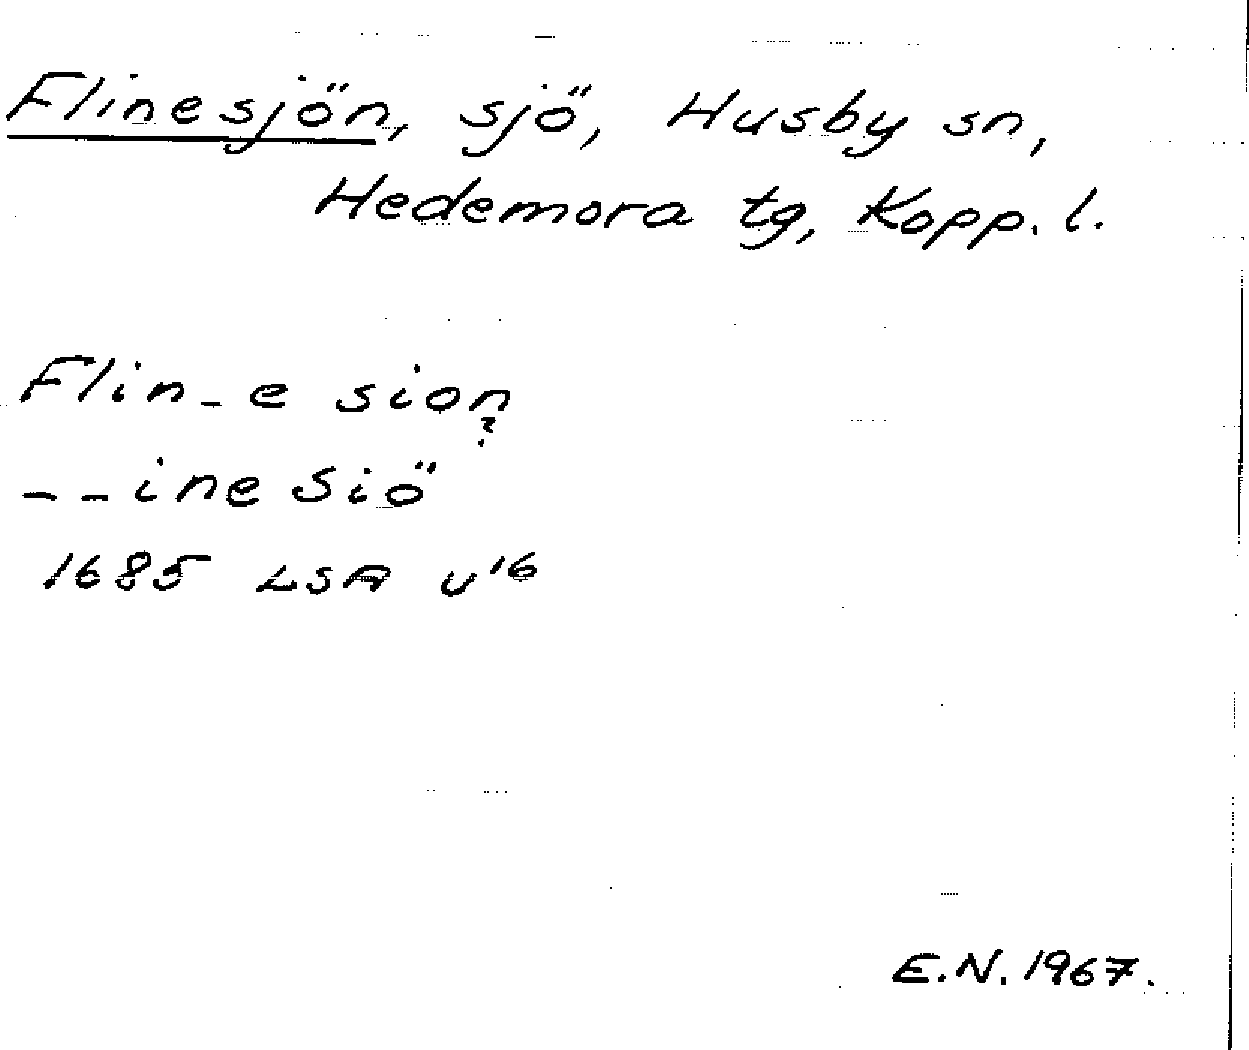 Flinesjön, sjö, Husby sn,
Hedemora tg, Kopp. l.
Flin_e sion
?
__ine Siö
1685 LSA U16
E.N. 1967.